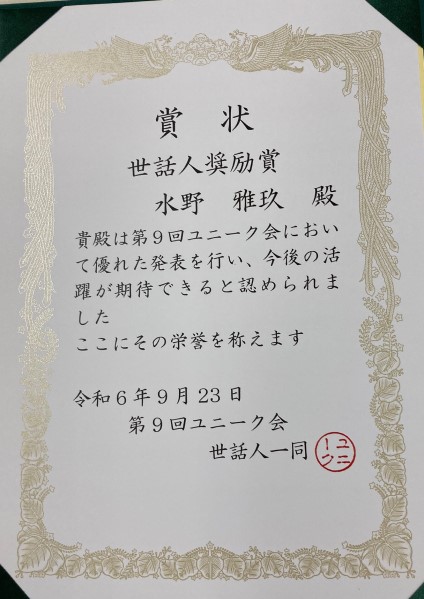 賞 状
世話人奨励賞
水野 雅玖 殿
貴殿は第9回ユニーク会におい
て優れた発表を行い、今後の活
躍が期待できると認められま
した
ここにその栄誉を称えます
令和6年9月23日
第9回ユニーク会
世話人一同
ユニーク